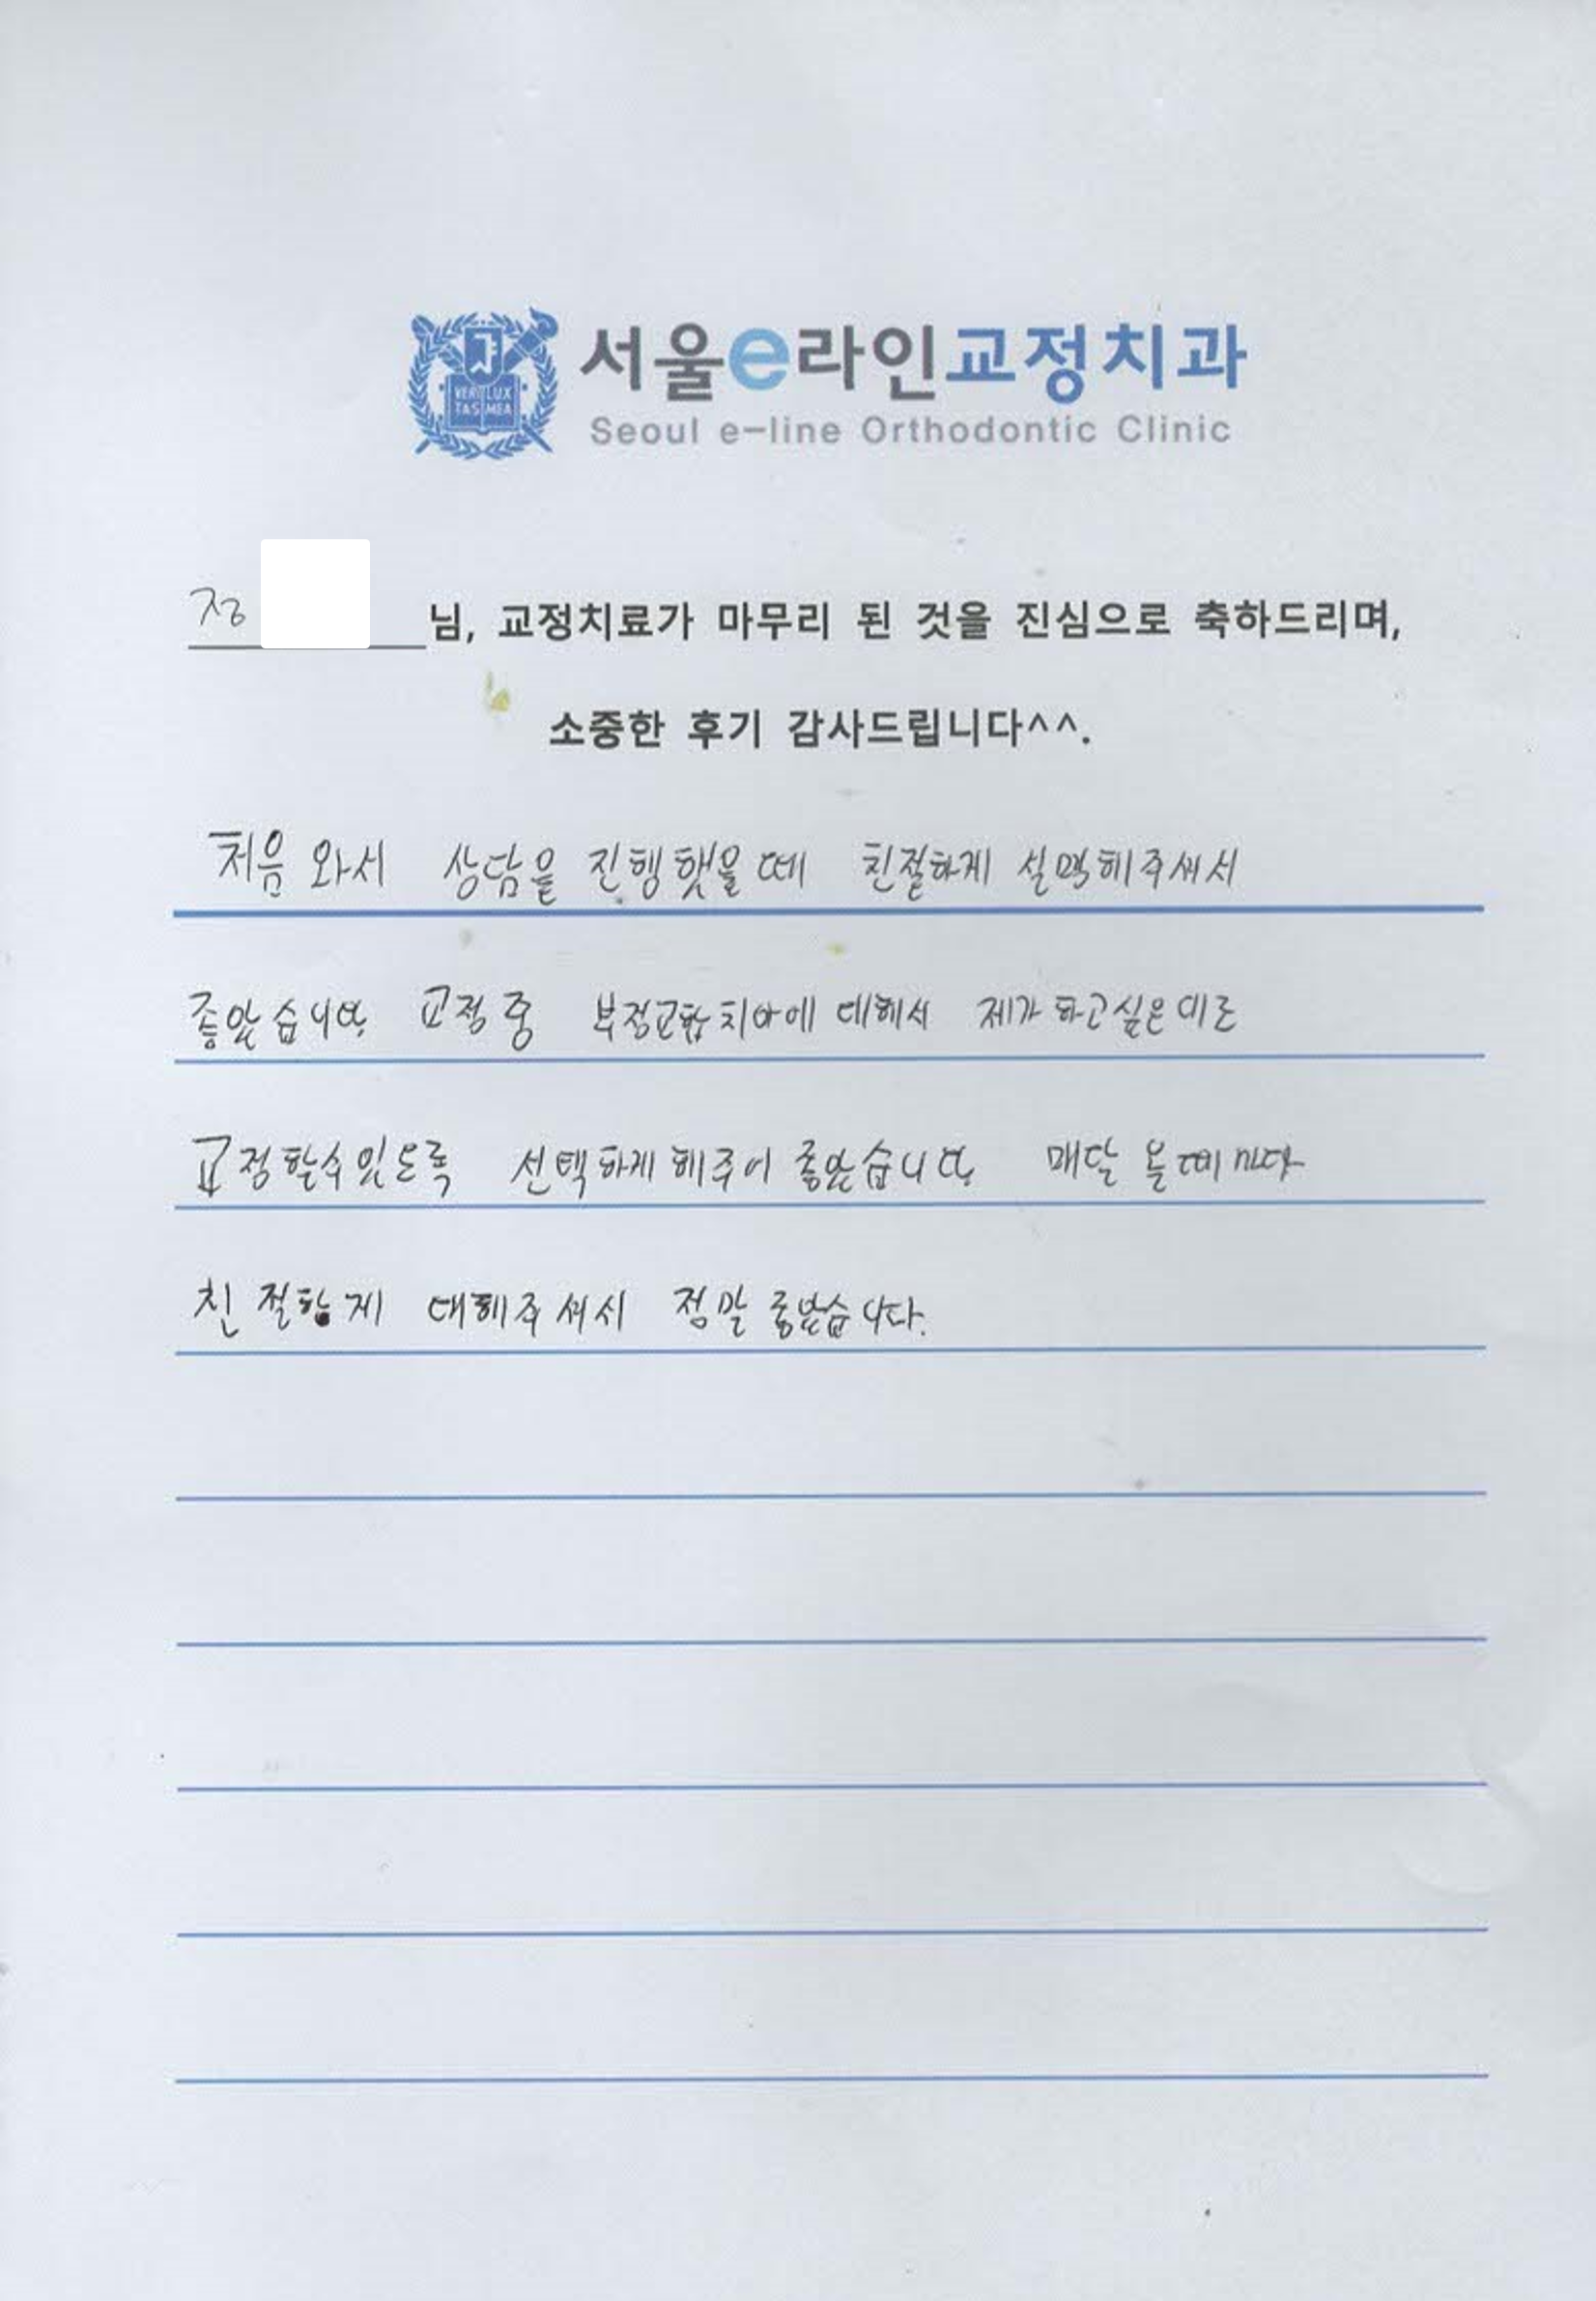 VERI LUX
TAS MEA
서울e라인교정치과
Seoul e-line Orthodontic Clinic
정 님, 교정치료가 마무리 된 것을 진심으로 축하드리며,
소중한 후기 감사드립니다^^.
처음 와서 상담을 진행했을 때 친절하게 설명해주셔서
좋았습니다. 교정중 부정교합치아에 대해서 제가 하고싶은대로
교정할수있도록 선택하게 해주어 좋았습니다. 매달 올때마다
친절하게 대해주셔서 정말 좋았습니다.